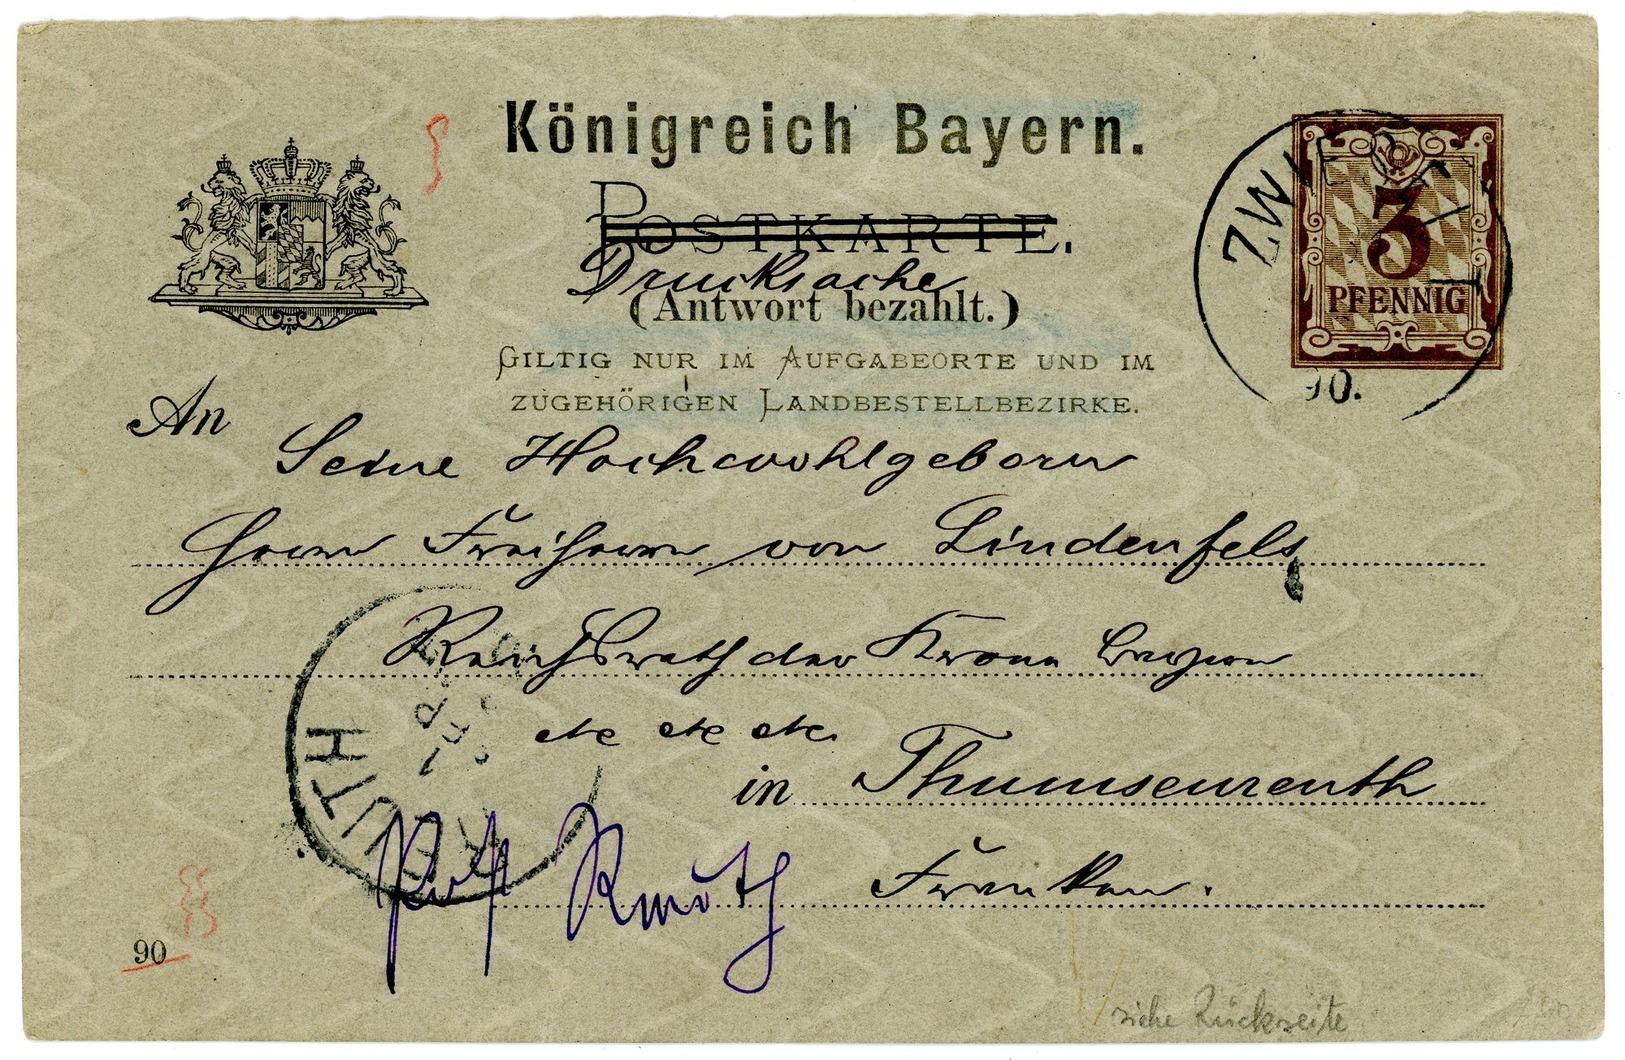 Königreich Bayern.
POSTKARTE.
Drucksache
(Antwort bezahlt.)
GILTIG NUR IM AUFGABEORTE UND IM
ZUGEHÖRIGEN LANDBESTELLBEZIRKE.
3
PFENNIG
90.
An
Seine Hochwohlgeborn
Herrn Freiherrn von Lindenfels
Reichsrath der Krone Bayern
etc etc etc
in Thumsenreuth
Franken.
Post Reuth
REUTH
90
siehe Rückseite